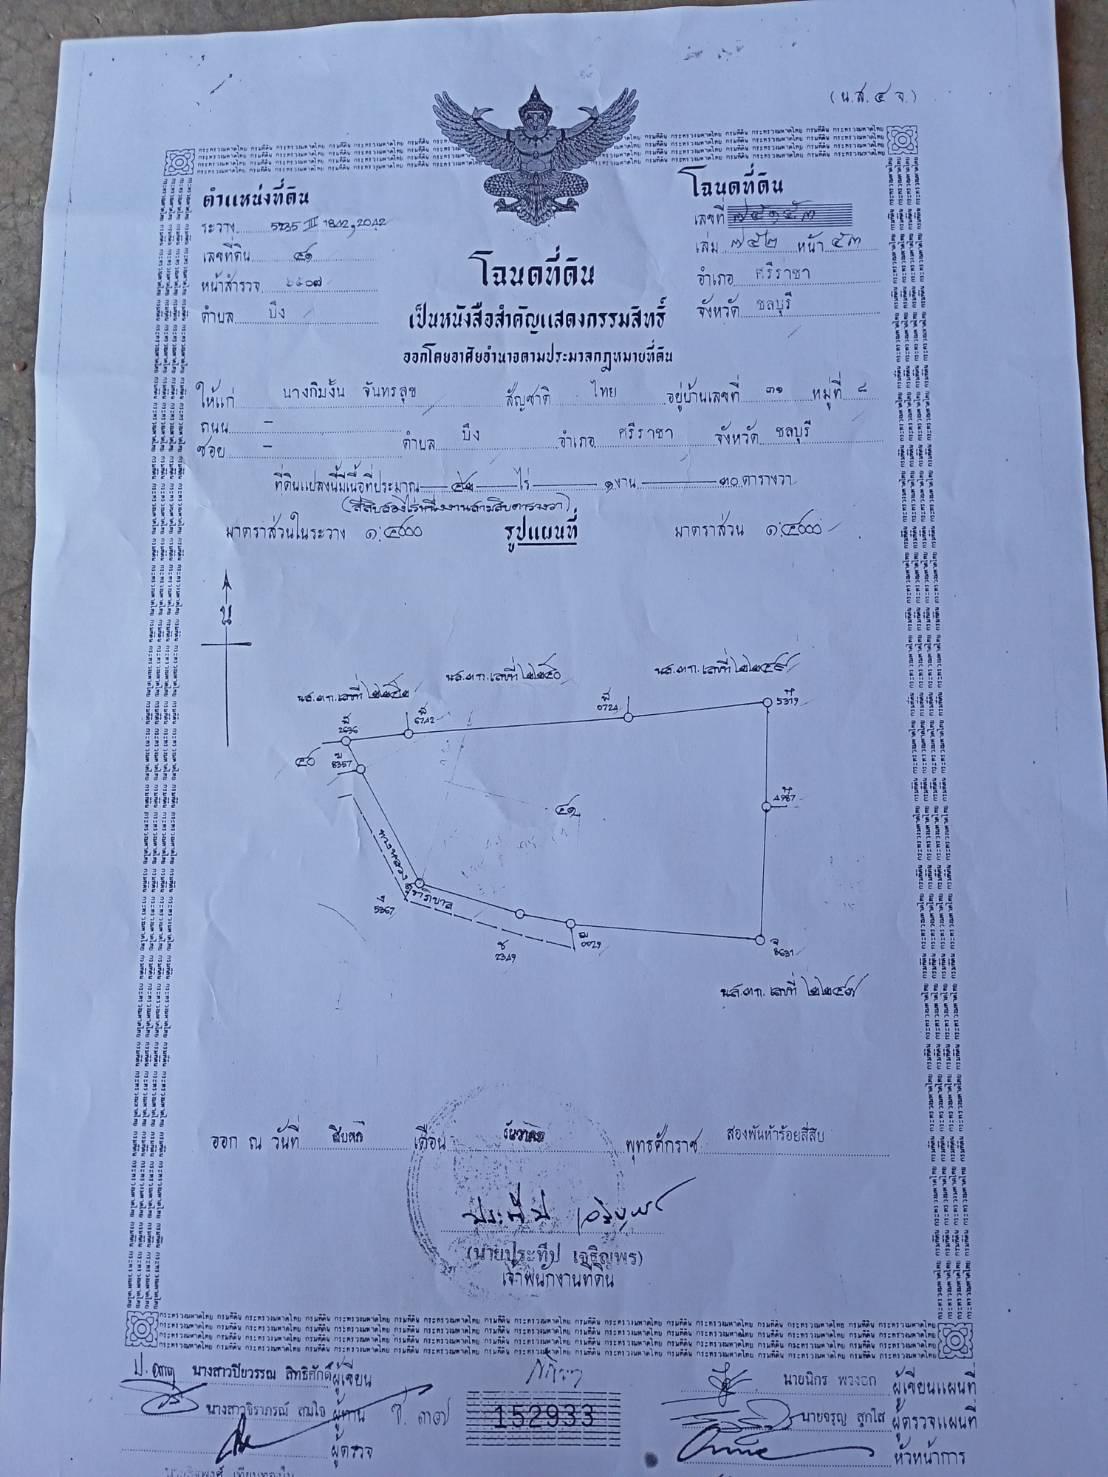 (น.ส. ๔ จ.)
ตำแหน่งที่ดิน
ระวาง 5235 III 1812, 2012
เลขที่ดิน ๔๑
หน้าสำรวจ
ตำบล บึง
โฉนดที่ดิน
เลขที่ ๗๔๑๔๓
เล่ม ๗๔๒ หน้า ๔๓
อำเภอ ศรีราชา
จังหวัด ชลบุรี
โฉนดที่ดิน
เป็นหนังสือสำคัญแสดงกรรมสิทธิ์
ออกโดยอาศัยอำนาจตามประมวลกฎหมายที่ดิน
ให้แก่ นางกิมงั้น จันทรสุข สัญชาติ ไทย อยู่บ้านเลขที่ ๓๑ หมู่ที่ ๘
ถนน –
ซอย – ตำบล บึง อำเภอ ศรีราชา จังหวัด ชลบุรี
ที่ดินแปลงนี้มีเนื้อที่ประมาณ ๔๒ ไร่ ๑ งาน ๓๐ ตารางวา
(สี่สิบสองไร่หนึ่งงานสามสิบตารางวา)
มาตราส่วนในระวาง ๑:๔๐๐๐ รูปแผนที่ มาตราส่วน ๑:๔๐๐๐
น
น.ส.๓ ก. เลขที่ ๒๒๕๒
น.ส.๓ ก. เลขที่ ๒๒๕๐
น.ส.๓ ก. เลขที่ ๒๒๔๙
2636
6742
0724
5379
๔๐
8357
4987
๔๑
ทางหลวง
สุขาภิบาล
5367
2349
0029
8631
น.ส.๓ ก. เลขที่ ๒๒๔๗
ออก ณ วันที่ สิบหก เดือน ธันวาคม พุทธศักราช สองพันห้าร้อยสี่สิบ
(นายประทีป เจริญพร)
เจ้าพนักงานที่ดิน
นางสาวปิยวรรณ สิทธิศักดิ์ ผู้เขียน
นางสาวจิราภรณ์ สมใจ ผู้ทาน
ผู้ตรวจ
152933
นายนิกร ผู้เขียนแผนที่
นายจรูญ สุกใส ผู้ตรวจแผนที่
หัวหน้าการ